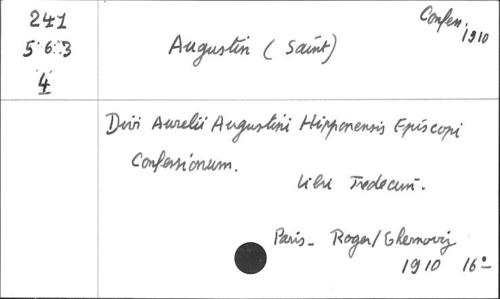 241
5.6.3
4
Augustin (Saint)
Confess.
1910
Divi Aurelii Augustini Hipponensis Episcopi
Confessionum.
Libri Tredecim.
Paris - Roger/Chernoviz
1910 16°